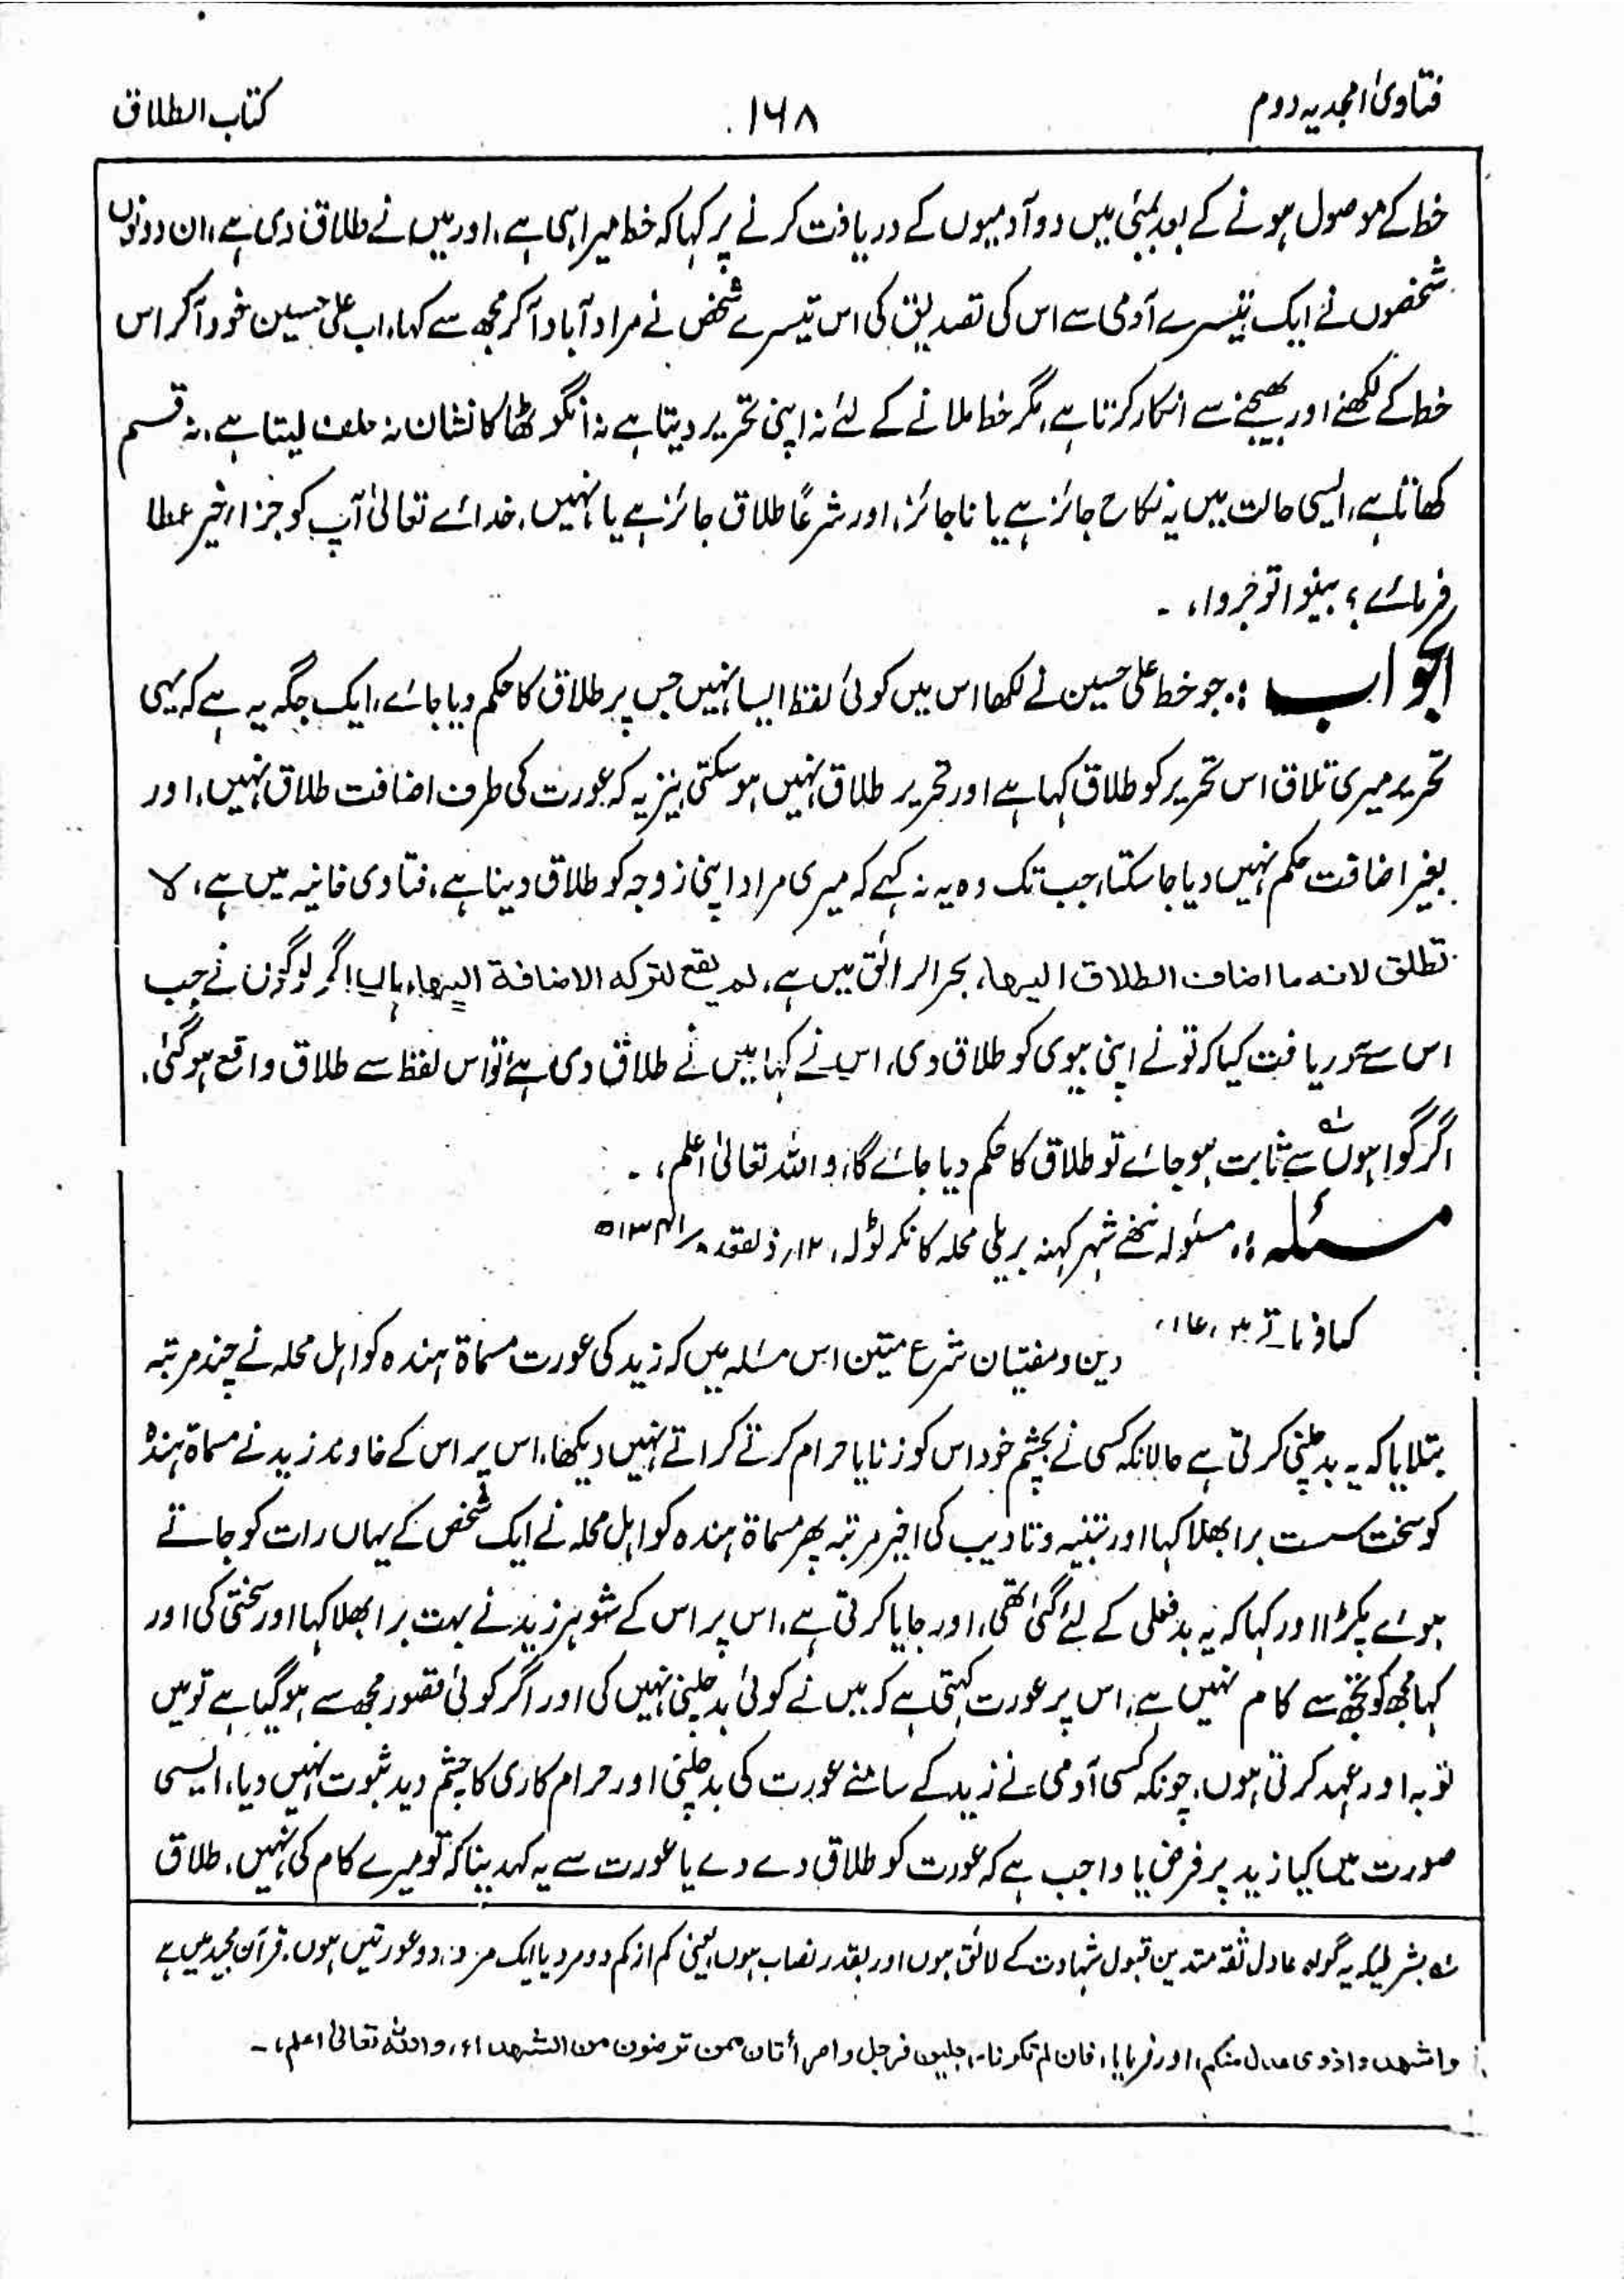 فتاویٰ امجدیہ دوم
۱۶۸
کتاب الطلاق
خط کے موصول ہونے کے بعد بمبئی میں دو آدمیوں کے دریافت کرنے پر کہا کہ خط میرا ہی ہے، اور میں نے طلاق دی ہے، ان دونوں
شخصوں نے ایک تیسرے آدمی سے اس کی تصدیق کی اس تیسرے شخص نے مراد آباد آکر مجھ سے کہا، اب علی حسین خود آکر اس
خط کے لکھنے اور بھیجنے سے انکار کرتا ہے، مگر خط ملانے کے لئے نہ اپنی تحریر دیتا ہے نہ انگوٹھا کا نشان نہ حلف لیتا ہے، نہ قسم
کھاتا ہے، ایسی حالت میں یہ نکاح جائز ہے یا ناجائز، اور شرعًا طلاق جائز ہے یا نہیں، خدائے تعالیٰ آپ کو جزاء خیر عطا
فرمائے؟ بینوا توجروا، ۔
الجواب :۔ جو خط علی حسین نے لکھا اس میں کوئی لفظ ایسا نہیں جس پر طلاق کا حکم دیا جائے، ایک جگہ یہ ہے کہ یہی
تحریر میری تلاق اس تحریر کو طلاق کہا ہے اور تحریر طلاق نہیں ہو سکتی نیز یہ کہ عورت کی طرف اضافت طلاق نہیں، اور
بغیر اضافت حکم نہیں دیا جا سکتا، جب تک وہ یہ نہ کہے کہ میری مراد اپنی زوجہ کو طلاق دینا ہے، فتاوی خانیہ میں ہے، لا
تطلق لانہ ما اضاف الطلاق الیہا، بحر الرائق میں ہے، لم یقع لترکہ الاضافة الیہا، ہاں اگر لوگوں نے جب
اس سے دریافت کیا کہ تو نے اپنی بیوی کو طلاق دی، اس نے کہا میں نے طلاق دی ہے تو اس لفظ سے طلاق واقع ہو گئی،
اگر گواہوں لہ سے ثابت ہو جائے تو طلاق کا حکم دیا جائے گا، واللہ تعالیٰ اعلم، ۔
مسئلہ :۔ مسئولہ ننھے شہر کہنہ بریلی محلہ کانکر ٹولہ، ۱۲؍ ذلقعدہ ؍۱۳۴۱ھ
کیا فرماتے
دین و مفتیان شرع متین اس مسئلہ میں کہ زید کی عورت مسماة ہندہ کو اہل محلہ نے چند مرتبہ
بتلایا کہ یہ بد چلنی کرتی ہے حالانکہ کسی نے بچشم خود اس کو زنا یا حرام کرتے کراتے نہیں دیکھا، اس پر اس کے خاوند زید نے مسماة ہندہ
کو سخت سست برا بھلا کہا اور تنبیہ و تادیب کی اخیر مرتبہ پھر مسماة ہندہ کو اہل محلہ نے ایک شخص کے یہاں رات کو جاتے
ہوئے پکڑا اور کہا کہ یہ بد فعلی کے لئے گئی تھی، اور جایا کرتی ہے، اس پر اس کے شوہر زید نے بہت برا بھلا کہا اور سختی کی اور
کہا مجھ کو تجھ سے کام نہیں ہے، اس پر عورت کہتی ہے کہ میں نے کوئی بد چلنی نہیں کی اور اگر کوئی قصور مجھ سے ہو گیا ہے تو میں
توبہ اور عہد کرتی ہوں، چونکہ کسی آدمی نے زید کے سامنے عورت کی بد چلنی اور حرام کاری کا چشم دید ثبوت نہیں دیا، ایسی
صورت میں کیا زید پر فرض یا واجب ہے کہ عورت کو طلاق دے دے یا عورت سے یہ کہدینا کہ تو میرے کام کی نہیں، طلاق
لہ بشرطیکہ یہ گواہ عادل ثقہ متدین قبول شہادت کے لائق ہوں اور بقدر نصاب ہوں یعنی کم از کم دو مرد یا ایک مرد، دو عورتیں ہوں، قرآن مجید میں ہے
واشھدوا ذوی عدل منکم، اور فرمایا، فان لم تکونا رجلین فرجل وامرأتان ممن ترضون من الشھداء، واللہ تعالیٰ اعلم، ۔